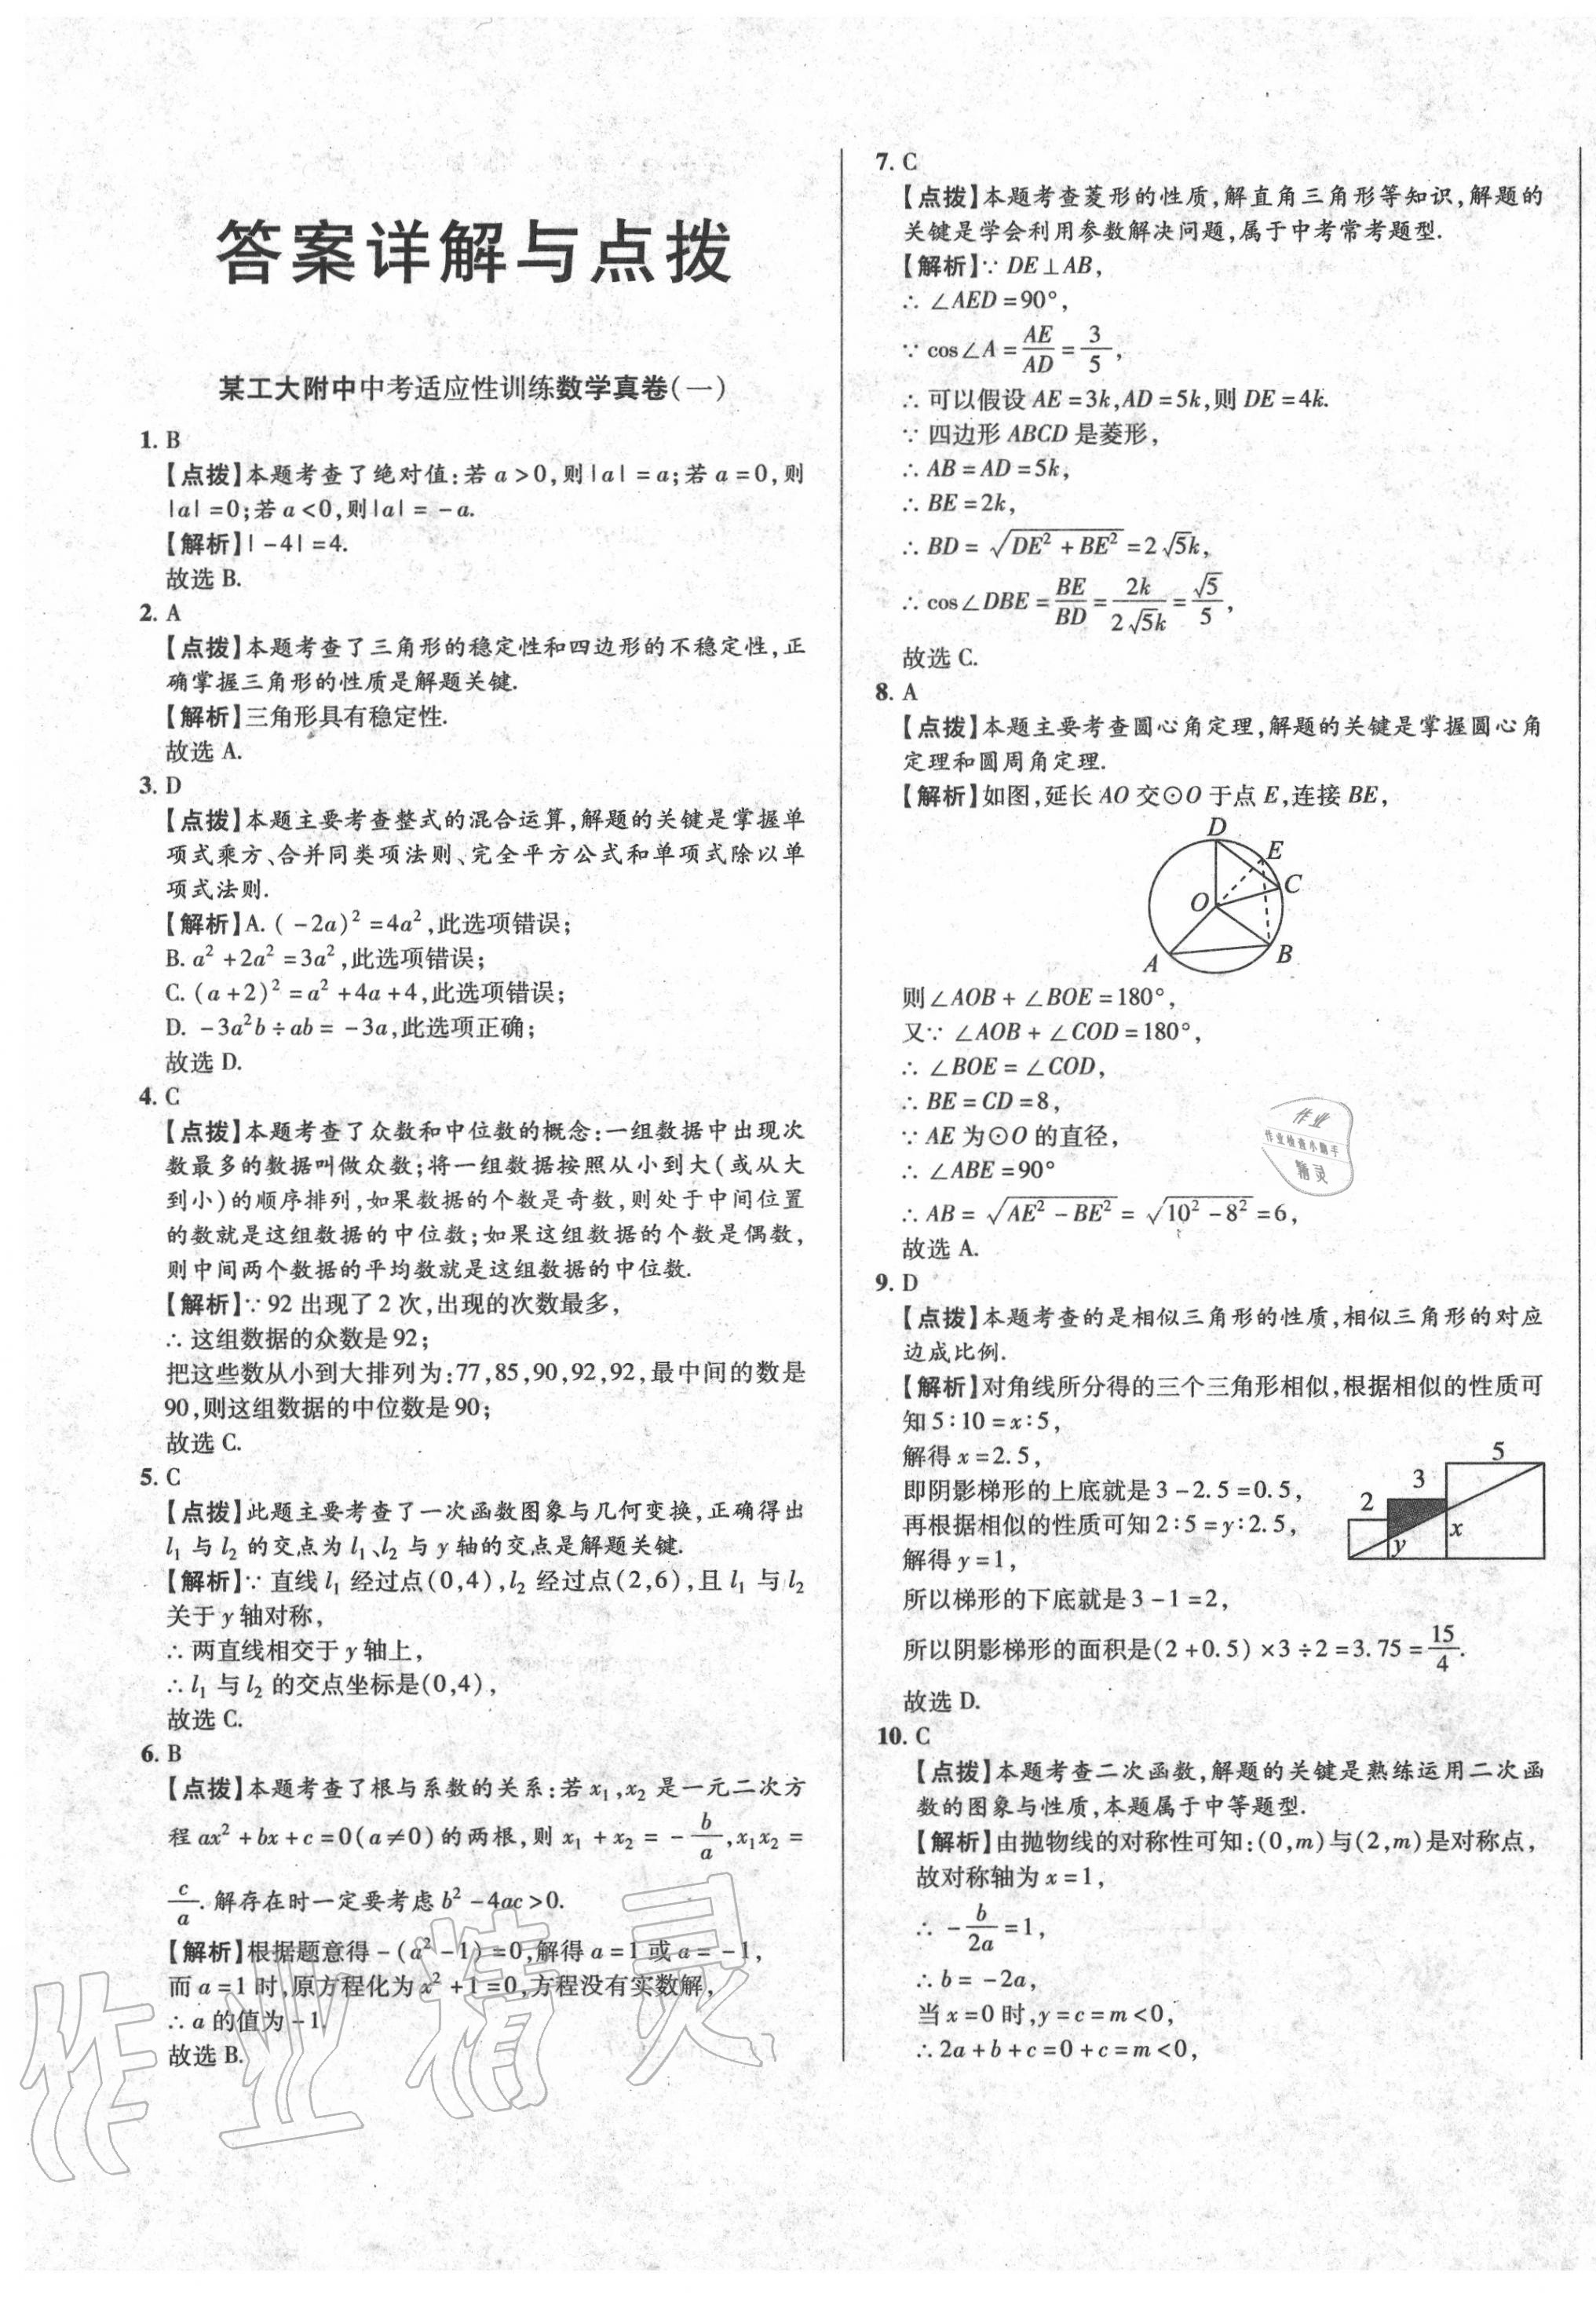 答案详解与点拨
某工大附中中考适应性训练数学真卷(一)
1. B
【点拨】本题考查了绝对值:若 a>0,则|a|=a;若 a=0,则
|a|=0;若 a<0,则|a|=-a.
【解析】|-4|=4.
故选 B.
2. A
【点拨】本题考查了三角形的稳定性和四边形的不稳定性,正
确掌握三角形的性质是解题关键.
【解析】三角形具有稳定性.
故选 A.
3. D
【点拨】本题主要考查整式的混合运算,解题的关键是掌握单
项式乘方、合并同类项法则、完全平方公式和单项式除以单
项式法则.
【解析】A. (-2a)²=4a²,此选项错误;
B. a²+2a²=3a²,此选项错误;
C. (a+2)²=a²+4a+4,此选项错误;
D. -3a²b÷ab=-3a,此选项正确;
故选 D.
4. C
【点拨】本题考查了众数和中位数的概念:一组数据中出现次
数最多的数据叫做众数;将一组数据按照从小到大(或从大
到小)的顺序排列,如果数据的个数是奇数,则处于中间位置
的数就是这组数据的中位数;如果这组数据的个数是偶数,
则中间两个数据的平均数就是这组数据的中位数.
【解析】∵92 出现了 2 次,出现的次数最多,
∴这组数据的众数是 92;
把这些数从小到大排列为:77,85,90,92,92,最中间的数是
90,则这组数据的中位数是 90;
故选 C.
5. C
【点拨】此题主要考查了一次函数图象与几何变换,正确得出
l₁ 与 l₂ 的交点为 l₁、l₂ 与 y 轴的交点是解题关键.
【解析】∵直线 l₁ 经过点(0,4),l₂ 经过点(2,6),且 l₁ 与 l₂
关于 y 轴对称,
∴两直线相交于 y 轴上,
∴l₁ 与 l₂ 的交点坐标是(0,4),
故选 C.
6. B
【点拨】本题考查了根与系数的关系:若 x₁,x₂ 是一元二次方
程 ax²+bx+c=0(a≠0)的两根,则 x₁+x₂=-b/a,x₁x₂=
c/a.解存在时一定要考虑 b²-4ac>0.
【解析】根据题意得-(a²-1)=0,解得 a=1 或 a=-1,
而 a=1 时,原方程化为 x²+1=0,方程没有实数解,
∴a 的值为-1.
故选 B.
7. C
【点拨】本题考查菱形的性质,解直角三角形等知识,解题的
关键是学会利用参数解决问题,属于中考常考题型.
【解析】∵DE⊥AB,
∴∠AED=90°,
∵cos∠A=AE/AD=3/5,
∴可以假设 AE=3k,AD=5k,则 DE=4k.
∵四边形 ABCD 是菱形,
∴AB=AD=5k,
∴BE=2k,
∴BD=√(DE²+BE²)=2√5k,
∴cos∠DBE=BE/BD=2k/(2√5k)=√5/5,
故选 C.
8. A
【点拨】本题主要考查圆心角定理,解题的关键是掌握圆心角
定理和圆周角定理.
【解析】如图,延长 AO 交⊙O 于点 E,连接 BE,
D
E
C
O
B
A
则∠AOB+∠BOE=180°,
又∵∠AOB+∠COD=180°,
∴∠BOE=∠COD,
∴BE=CD=8,
∵AE 为⊙O 的直径,
∴∠ABE=90°
∴AB=√(AE²-BE²)=√(10²-8²)=6,
故选 A.
9. D
【点拨】本题考查的是相似三角形的性质,相似三角形的对应
边成比例.
【解析】对角线所分得的三个三角形相似,根据相似的性质可
知 5∶10=x∶5,
解得 x=2.5,
即阴影梯形的上底就是 3-2.5=0.5,
再根据相似的性质可知 2∶5=y∶2.5,
解得 y=1,
所以梯形的下底就是 3-1=2,
所以阴影梯形的面积是(2+0.5)×3÷2=3.75=15/4.
故选 D.
5
3
2
x
y
10. C
【点拨】本题考查二次函数,解题的关键是熟练运用二次函
数的图象与性质,本题属于中等题型.
【解析】由抛物线的对称性可知:(0,m)与(2,m)是对称点,
故对称轴为 x=1,
∴-b/2a=1,
∴b=-2a,
当 x=0 时,y=c=m<0,
∴2a+b+c=0+c=m<0,
作业
作业检查小助手
精灵
作业精灵